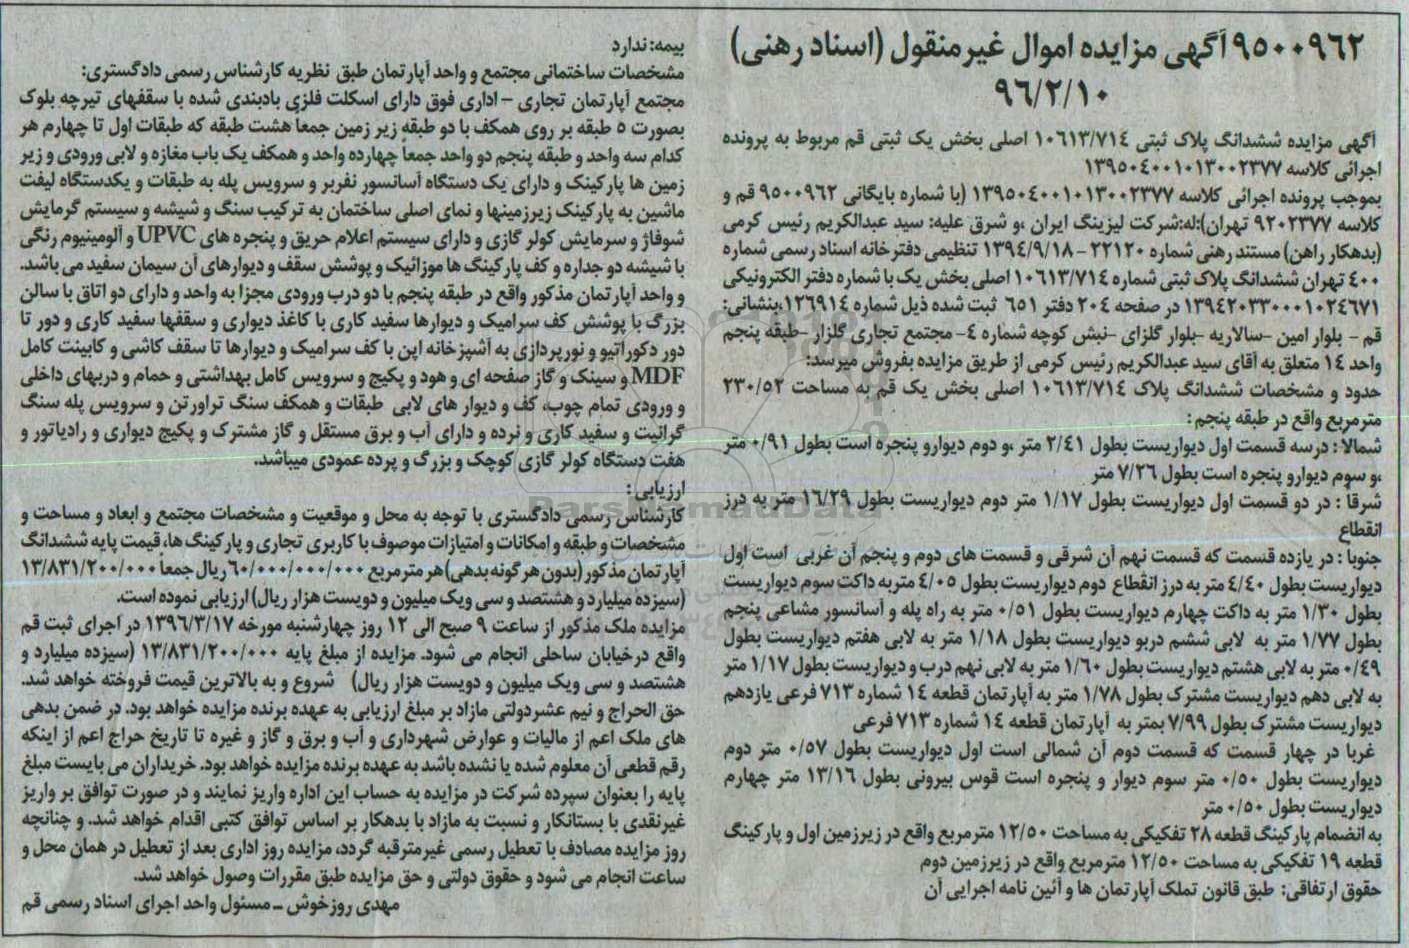 ۹۵۰۰۹۶۲ آگهی مزایده اموال غیرمنقول (اسناد رهنی)
۹۶/۲/۱۰
آگهی مزایده ششدانگ پلاک ثبتی ۱۰۶۱۳/۷۱۴ اصلی بخش یک ثبتی قم مربوط به پرونده
اجرائی کلاسه ۱۳۹۵۰۴۰۰۱۰۱۳۰۰۲۳۷۷
بموجب پرونده اجرائی کلاسه ۱۳۹۵۰۴۰۰۱۰۱۳۰۰۲۳۷۷ (با شماره بایگانی ۹۵۰۰۹۶۲ قم و
کلاسه ۹۲۰۲۳۷۷ تهران):له:شرکت لیزینگ ایران .و شرق علیه: سید عبدالکریم رئیس کرمی
(بدهکار راهن) مستند رهنی شماره ۲۲۱۲۰ - ۱۳۹۴/۹/۱۸ تنظیمی دفترخانه اسناد رسمی شماره
۴۰۰ تهران ششدانگ پلاک ثبتی شماره ۱۰۶۱۳/۷۱۴ اصلی بخش یک با شماره دفتر الکترونیکی
۱۳۹۴۲۰۳۳۰۰۰۱۰۲۴۶۷۱ در صفحه ۲۰۴ دفتر ۶۵۱ ثبت شده ذیل شماره ۱۲۶۹۱۴،بنشانی:
قم - بلوار امین -سالاریه -بلوار گلزای -نبش کوچه شماره ۴- مجتمع تجاری گلزار -طبقه پنجم
واحد ۱۴ متعلق به آقای سید عبدالکریم رئیس کرمی از طریق مزایده بفروش میرسد:
حدود و مشخصات ششدانگ پلاک ۱۰۶۱۳/۷۱۴ اصلی بخش یک قم به مساحت ۲۳۰/۵۲
مترمربع واقع در طبقه پنجم :
شمالا : درسه قسمت اول دیواریست بطول ۲/۴۱ متر .و دوم دیوارو پنجره است بطول ۰/۹۱ متر
.و سوم دیوارو پنجره است بطول ۷/۲۶ متر
شرقا : در دو قسمت اول دیواریست بطول ۱/۱۷ متر دوم دیواریست بطول ۱۶/۲۹ متر به درز
انقطاع
جنوبا : در یازده قسمت که قسمت نهم آن شرقی و قسمت های دوم و پنجم آن غربی است اول
دیواریست بطول ۴/۴۰ متر به درز انقطاع دوم دیواریست بطول ۴/۰۵ متربه داکت سوم دیواریست
بطول ۱/۳۰ متر به داکت چهارم دیواریست بطول ۰/۵۱ متر به راه پله و آسانسور مشاعی پنجم
بطول ۱/۷۷ متر به لابی ششم دربو دیواریست بطول ۱/۱۸ متر به لابی هفتم دیواریست بطول
۰/۴۹ متر به لابی هشتم دیواریست بطول ۱/۶۰ متر به لابی نهم درب و دیواریست بطول ۱/۱۷ متر
به لابی دهم دیواریست مشترک بطول ۱/۷۸ متر به آپارتمان قطعه ۱۴ شماره ۷۱۳ فرعی یازدهم
دیواریست مشترک بطول ۷/۹۹ بمتر به آپارتمان قطعه ۱۴ شماره ۷۱۳ فرعی
غربا در چهار قسمت که قسمت دوم آن شمالی است اول دیواریست بطول ۰/۵۷ متر دوم
دیواریست بطول ۰/۵۰ متر سوم دیوار و پنجره است قوس بیرونی بطول ۱۳/۱۶ متر چهارم
دیواریست بطول ۰/۵۰ متر
به انضمام پارکینگ قطعه ۲۸ تفکیکی به مساحت ۱۲/۵۰ مترمربع واقع در زیرزمین اول و پارکینگ
قطعه ۱۹ تفکیکی به مساحت ۱۲/۵۰ مترمربع واقع در زیرزمین دوم
حقوق ارتفاقی: طبق قانون تملک آپارتمان ها و آئین نامه اجرایی آن
بیمه: ندارد
مشخصات ساختمانی مجتمع و واحد آپارتمان طبق نظریه کارشناس رسمی دادگستری:
مجتمع آپارتمان تجاری - اداری فوق دارای اسکلت فلزی بادبندی شده با سقفهای تیرچه بلوک
بصورت ۵ طبقه بر روی همکف با دو طبقه زیر زمین جمعا هشت طبقه که طبقات اول تا چهارم هر
کدام سه واحد و طبقه پنجم دو واحد جمعاً چهارده واحد و همکف یک باب مغازه و لابی ورودی و زیر
زمین ها پارکینک و دارای یک دستگاه آسانسور نفربر و سرویس پله به طبقات و یکدستگاه لیفت
ماشین به پارکینک زیرزمینها و نمای اصلی ساختمان به ترکیب سنگ و شیشه و سیستم گرمایش
شوفاژ و سرمایش کولر گازی و دارای سیستم اعلام حریق و پنجره های UPVC و آلومینیوم رنگی
با شیشه دو جداره و کف پارکینگ ها موزائیک و پوشش سقف و دیوارهای آن سیمان سفید می باشد.
و واحد آپارتمان مذکور واقع در طبقه پنجم با دو درب ورودی مجزا به واحد و دارای دو اتاق با سالن
بزرگ با پوشش کف سرامیک و دیوارها سفید کاری با کاغذ دیواری و سقفها سفید کاری و دور تا
دور دکوراتیو و نورپردازی به آشپزخانه اپن با کف سرامیک و دیوارها تا سقف کاشی و کابینت کامل
MDF و سینک و گاز صفحه ای و هود و پکیج و سرویس کامل بهداشتی و حمام و دربهای داخلی
و ورودی تمام چوب، کف و دیوار های لابی طبقات و همکف سنگ تراورتن و سرویس پله سنگ
گرانیت و سفید کاری و نرده و دارای آب و برق مستقل و گاز مشترک و پکیج دیواری و رادیاتور و
هفت دستگاه کولر گازی کوچک و بزرگ و پرده عمودی میباشد.
ارزیابی :
کارشناس رسمی دادگستری با توجه به محل و موقعیت و مشخصات مجتمع و ابعاد و مساحت و
مشخصات و طبقه و امکانات و امتیازات موصوف با کاربری تجاری و پارکینگ ها، قیمت پایه ششدانگ
آپارتمان مذکور (بدون هرگونه بدهی) هر مترمربع ۶۰/۰۰۰/۰۰۰/۰۰۰ ریال جمعاً ۱۳/۸۳۱/۲۰۰/۰۰۰
(سیزده میلیارد و هشتصد و سی ویک میلیون و دویست هزار ریال) ارزیابی نموده است.
مزایده ملک مذکور از ساعت ۹ صبح الی ۱۲ روز چهارشنبه مورخه ۱۳۹۶/۳/۱۷ در اجرای ثبت قم
واقع درخیابان ساحلی انجام می شود. مزایده از مبلغ پایه ۱۳/۸۳۱/۲۰۰/۰۰۰ (سیزده میلیارد و
هشتصد و سی ویک میلیون و دویست هزار ریال) شروع و به بالاترین قیمت فروخته خواهد شد.
حق الحراج و نیم عشردولتی مازاد بر مبلغ ارزیابی به عهده برنده مزایده خواهد بود. در ضمن بدهی
های ملک اعم از مالیات و عوارض شهرداری و آب و برق و گاز و غیره تا تاریخ حراج اعم از اینکه
رقم قطعی آن معلوم شده یا نشده باشد به عهده برنده مزایده خواهد بود. خریداران می بایست مبلغ
پایه را بعنوان سپرده شرکت در مزایده به حساب این اداره واریز نمایند و در صورت توافق بر واریز
غیرنقدی با بستانکار و نسبت به مازاد با بدهکار بر اساس توافق کتبی اقدام خواهد شد. و چنانچه
روز مزایده مصادف با تعطیل رسمی غیرمترقبه گردد، مزایده روز اداری بعد از تعطیل در همان محل و
ساعت انجام می شود و حقوق دولتی و حق مزایده طبق مقررات وصول خواهد شد.
مهدی روزخوش - مسئول واحد اجرای اسناد رسمی قم
ParsNamadData